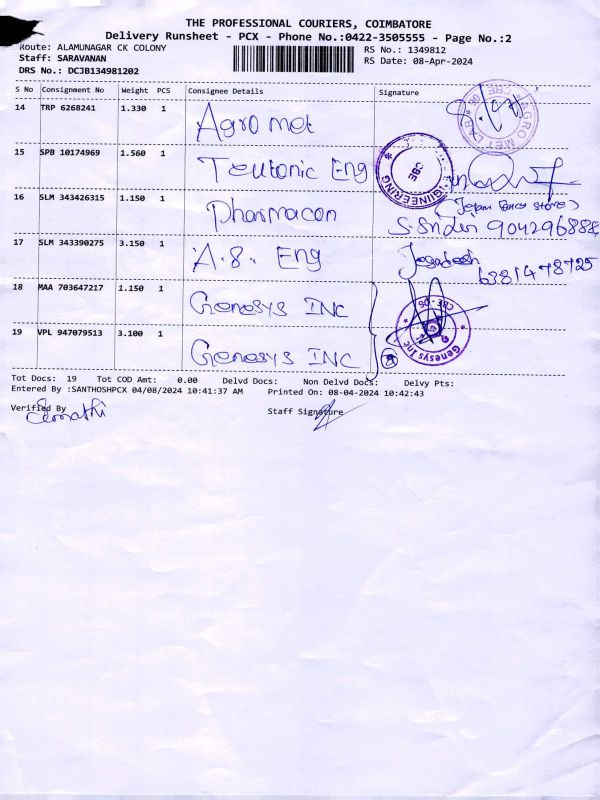 THE PROFESSIONAL COURIERS, COIMBATORE
Delivery Runsheet - PCX - Phone No.:0422-3505555 - Page No.:2
Route: ALAMUNAGAR CK COLONY
RS No.: 1349812
Staff: SARAVANAN
RS Date: 08-Apr-2024
DRS No.: DCJB134981202
S No Consignment No Weight PCS Consignee Details Signature
14 TRP 6268241 1.330 1 Agromet
AGRO MET LAB * CBE
15 SPB 10174969 1.560 1 Teutonic Eng
ENGINEERING * CBE
16 SLM 343426315 1.150 1 Pharmacon
9042968886
17 SLM 343390275 3.150 1 A.S. Eng Jegadesh
6381478725
18 MAA 703647217 1.150 1 Genesys INC
Genesys Inc * CBE-06 *
19 VPL 947079513 3.100 1 Genesys INC
Tot Docs: 19 Tot COD Amt: 0.00 Delvd Docs: Non Delvd Docs: Delvy Pts:
Entered By :SANTHOSHPCX 04/08/2024 10:41:37 AM Printed On: 08-04-2024 10:42:43
Verified By Staff Signature